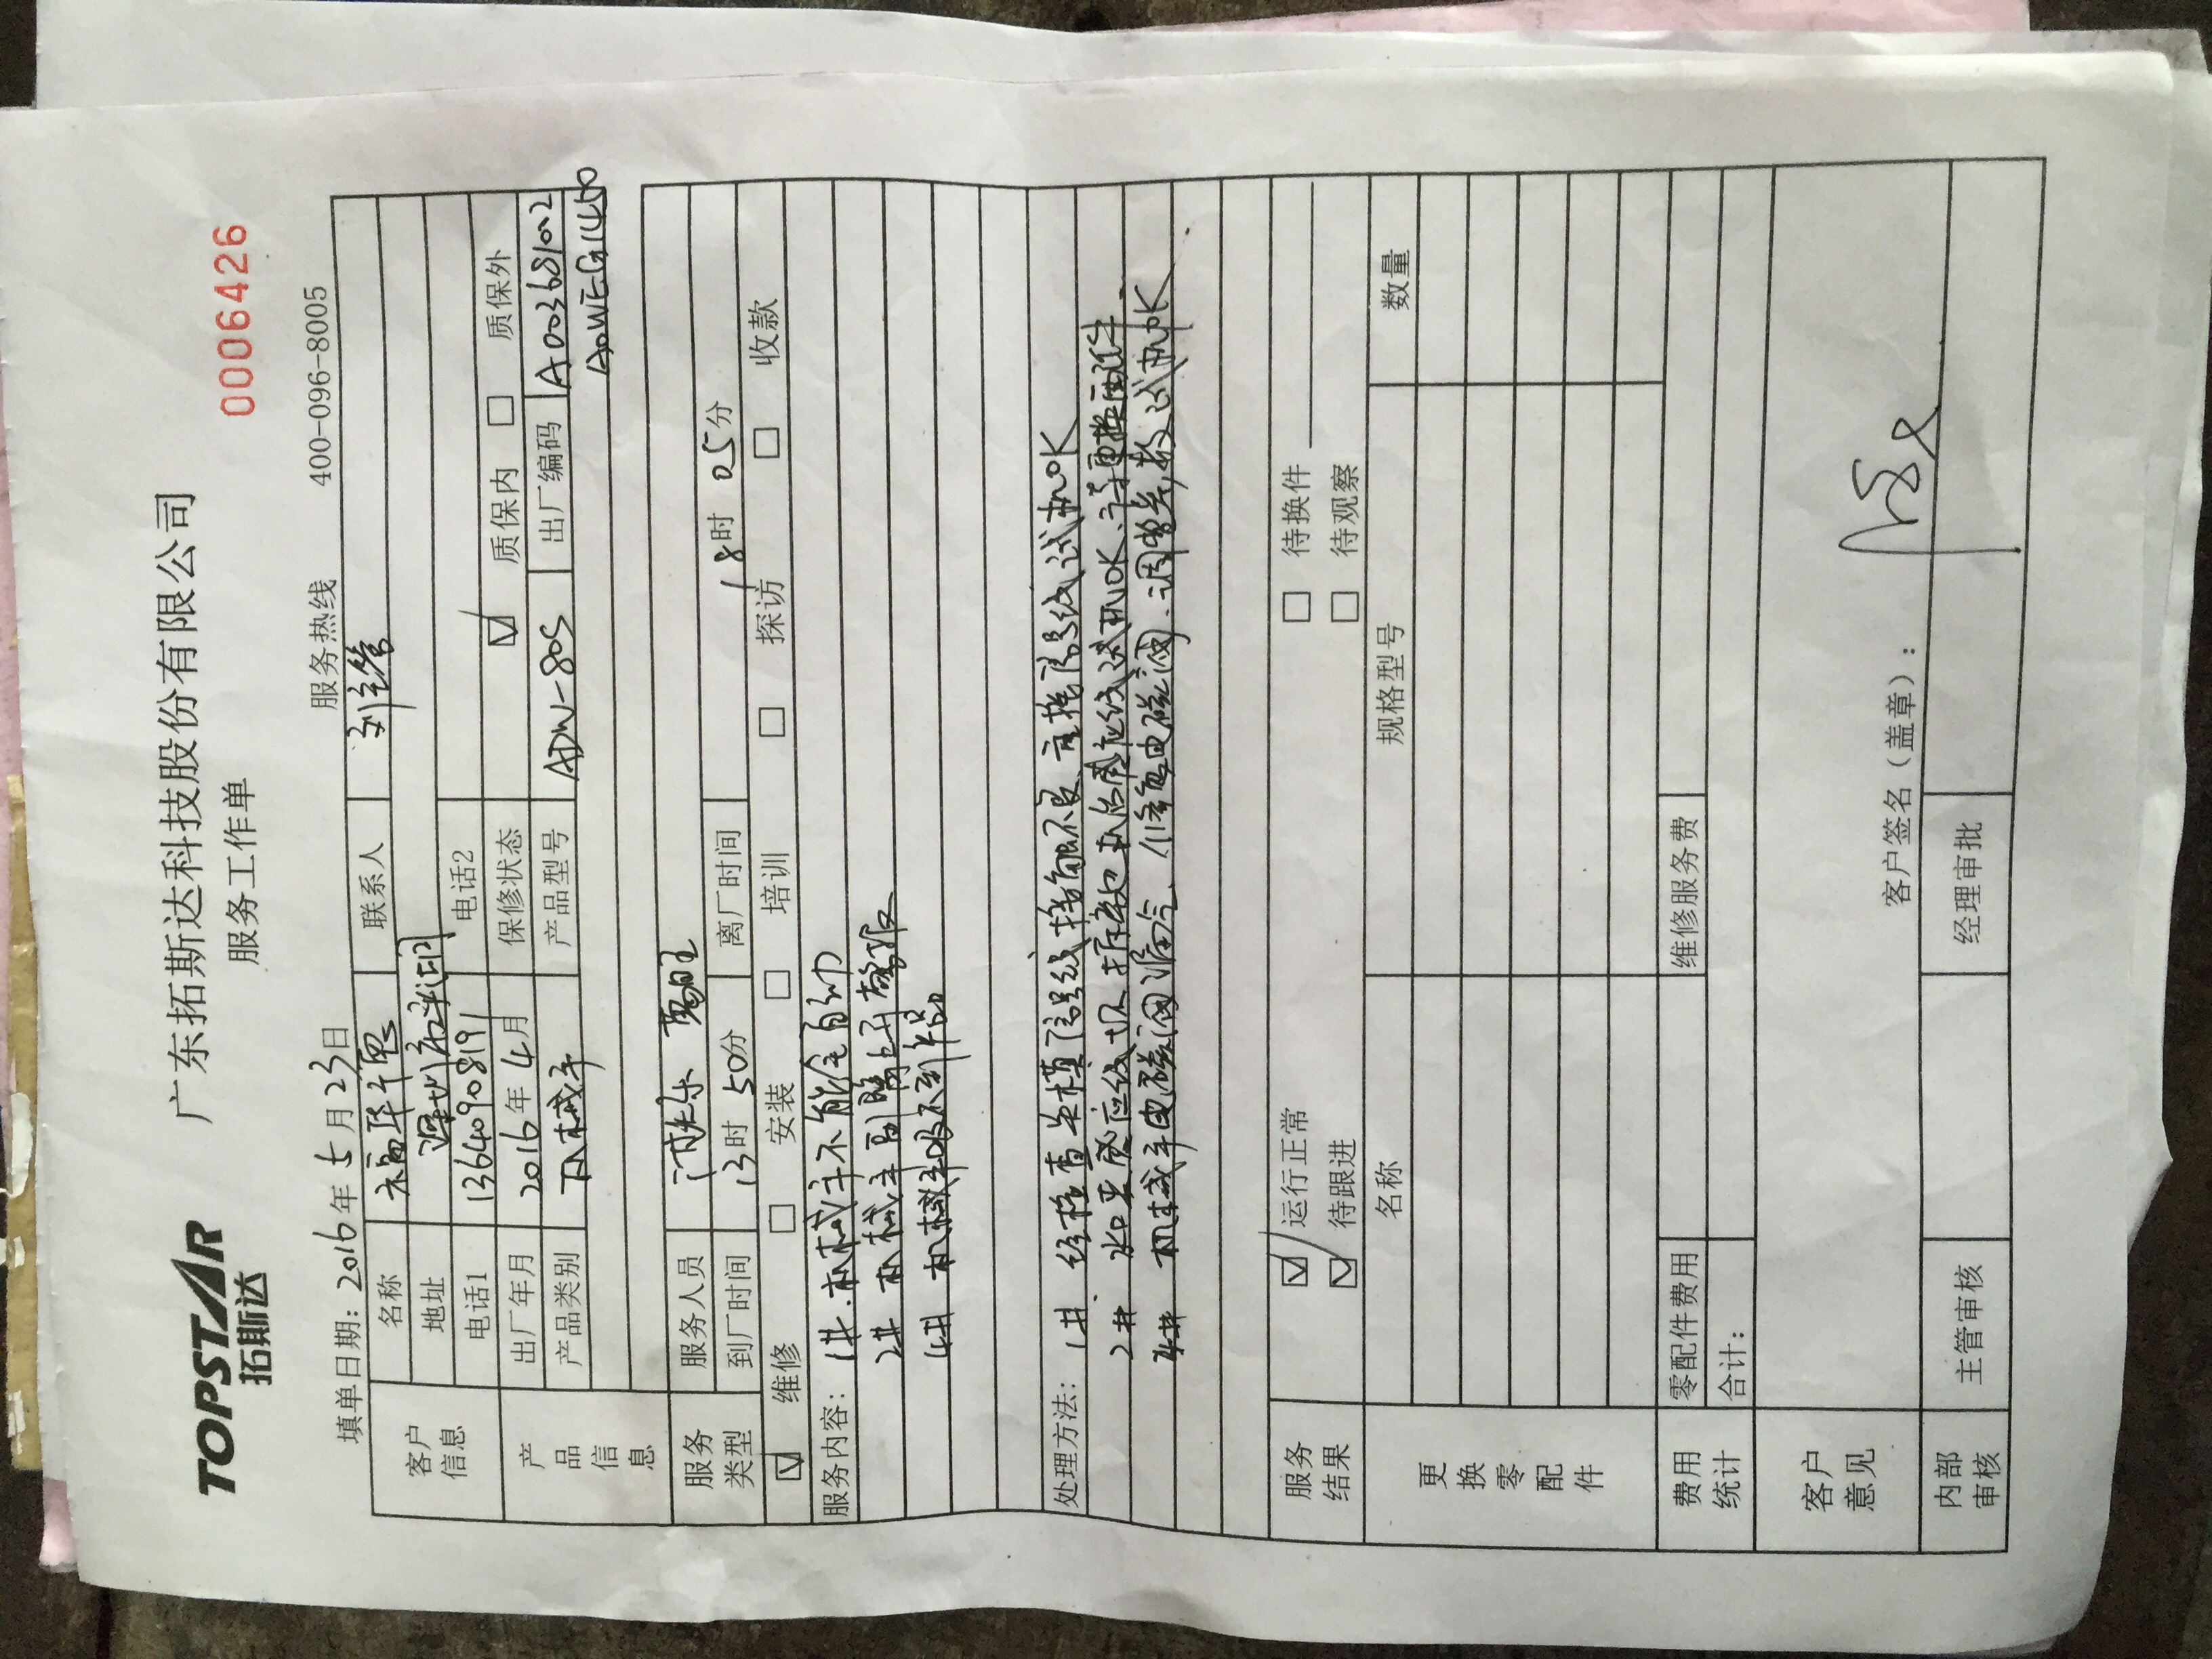 TOPSTAR
拓斯达
广东拓斯达科技股份有限公司
服务工作单
0006426
填单日期: 2016年 5月 23日
服务热线 400-096-8005
客户信息
名称 永高华 联系人 刘主管
地址
电话1 1364090819 电话2
产品信息
出厂年月 2016年 4月 保修状态 ☑ 质保内 □ 质保外
产品类别 机械手 产品型号 ADW-80S 出厂编码 A003681002
ADWEG1450
服务人员
服务类型
到厂时间 13时 50分 离厂时间 18时 05分
☑ 维修 □ 安装 □ 培训 □ 探访 □ 收款
服务内容: 1#. 机械手不能全自动
2# 机械手副臂上升警报
4# 机械手吸不到产品
处理方法: 1#. 经检查关模信号线接触不良、重接信号线试机OK
2# 感应线坏、感应线试机OK、等更换配件.
4# 机械手电磁阀漏气、修复电磁阀、调整参数试机OK.
服务结果
☑ 运行正常 □ 待换件
☑ 待跟进 □ 待观察
更换零配件
名称 规格型号 数量
费用统计
零配件费用 维修服务费
合计:
客户意见
客户签名(盖章):
内部审核
主管审核 经理审批